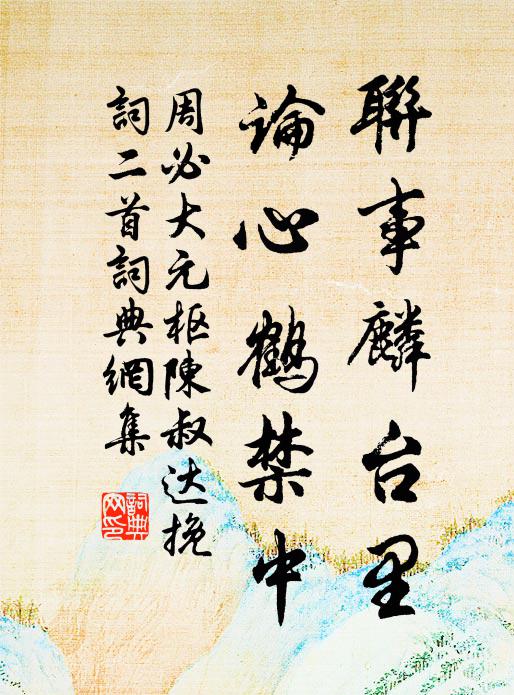 聯事麟台里
論心鶴禁中
周必大元枢陳叔达挽
詞二首詞典網集
詞典网印